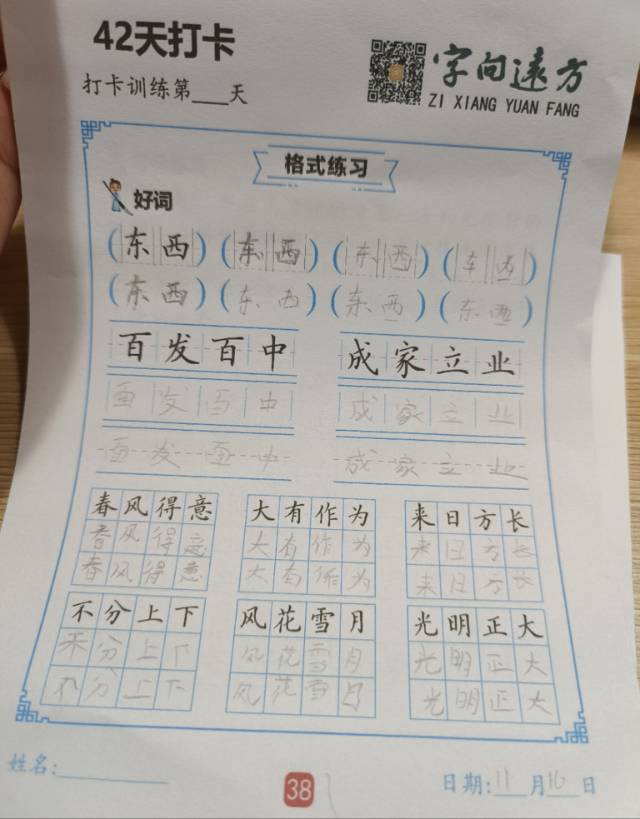 42天打卡
字向远方
打卡训练第___天
ZI XIANG YUAN FANG
格式练习
好词
(东西)(东西)(东西)(东西)
(东西)(东西)(东西)(东西)
百发百中 成家立业
百发百中 成家立业
百发百中 成家立业
春风得意 大有作为 来日方长
春风得意 大有作为 来日方长
春风得意 大有作为 来日方长
不分上下 风花雪月 光明正大
不分上下 风花雪月 光明正大
不分上下 风花雪月 光明正大
姓名:
38
日期:11月16日